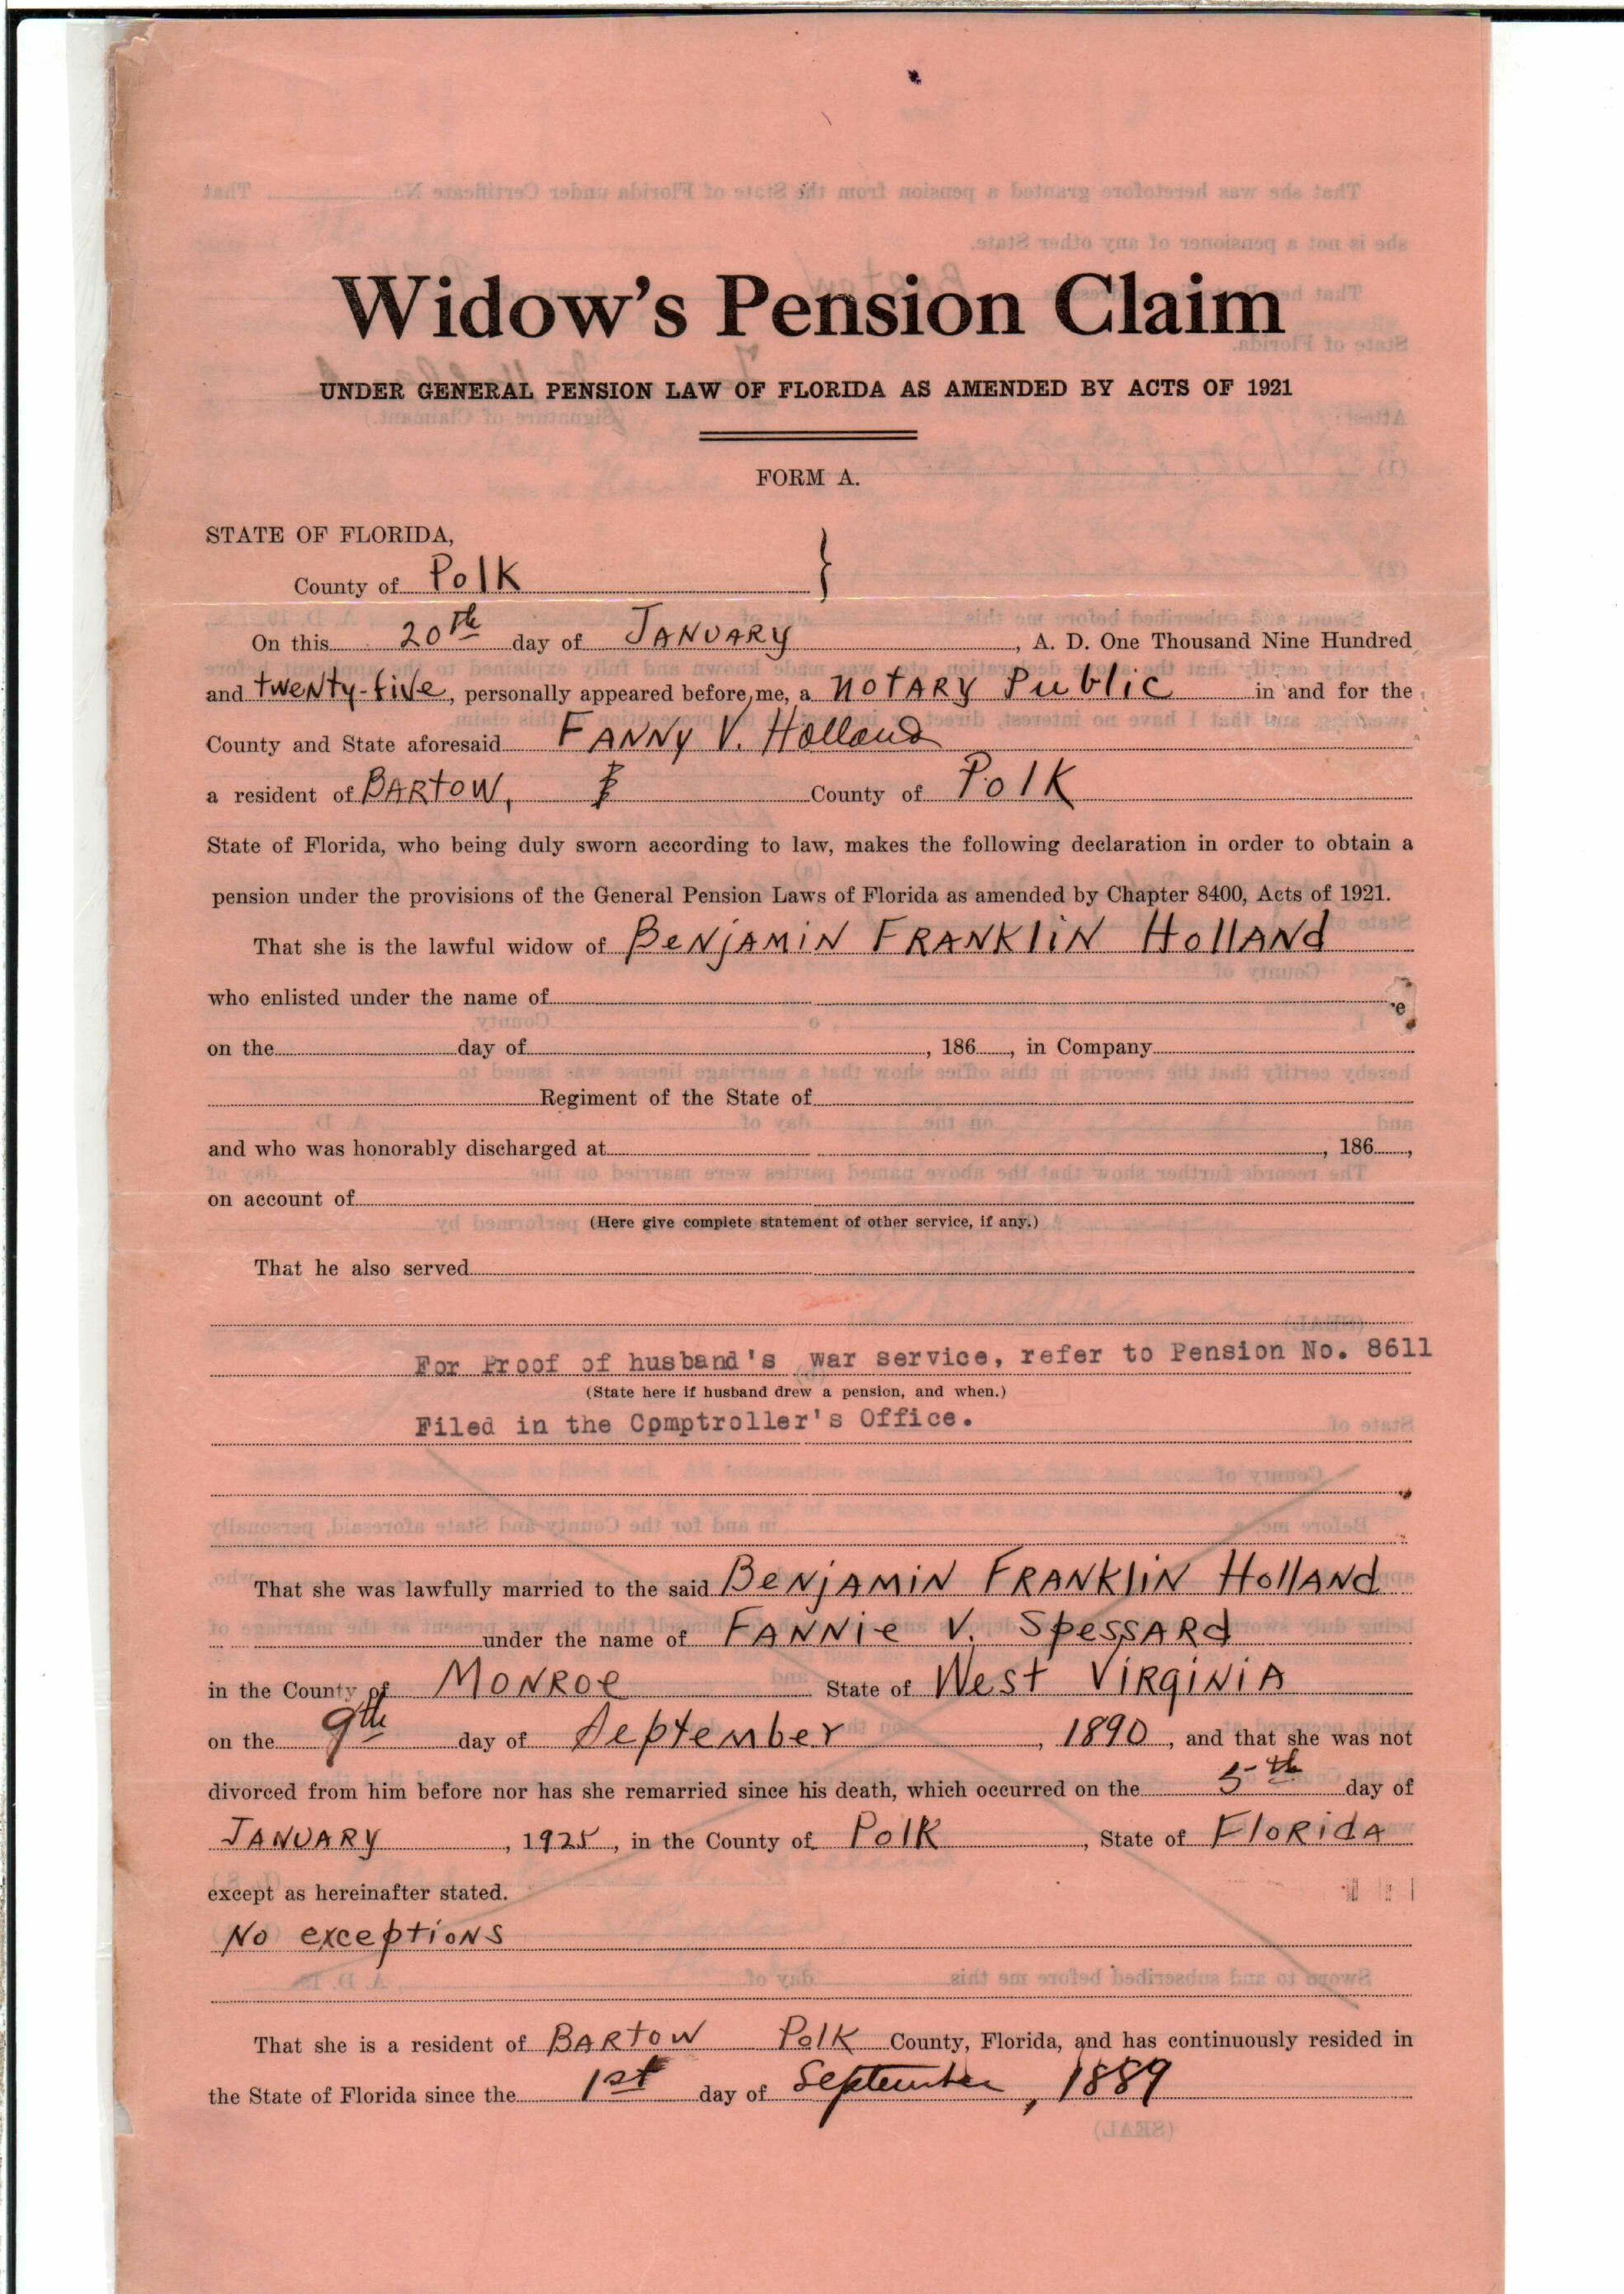 Widow's Pension Claim
UNDER GENERAL PENSION LAW OF FLORIDA AS AMENDED BY ACTS OF 1921
FORM A.
STATE OF FLORIDA,
County of Polk
On this 20th day of JANUARY, A. D. One Thousand Nine Hundred
and twenty-five, personally appeared before me, a NOTARY Public in and for the
County and State aforesaid FANNY V. Holland
a resident of BARTOW, County of Polk
State of Florida, who being duly sworn according to law, makes the following declaration in order to obtain a
pension under the provisions of the General Pension Laws of Florida as amended by Chapter 8400, Acts of 1921.
That she is the lawful widow of BENJAMIN FRANKLIN HOLLAND
who enlisted under the name of
on the day of , 186 , in Company
Regiment of the State of
and who was honorably discharged at , 186 ,
on account of
(Here give complete statement of other service, if any.)
That he also served
For Proof of husband's war service, refer to Pension No. 8611
(State here if husband drew a pension, and when.)
Filed in the Comptroller's Office.
That she was lawfully married to the said BENJAMIN FRANKLIN HOLLAND
under the name of FANNIE V. SPESSARD
in the County of MONROE State of West VIRGINIA
on the 9th day of September, 1890, and that she was not
divorced from him before nor has she remarried since his death, which occurred on the 5th day of
JANUARY, 1925, in the County of Polk, State of FLORIDA
except as hereinafter stated.
No exceptions
That she is a resident of BARTOW Polk County, Florida, and has continuously resided in
the State of Florida since the 1st day of September, 1889